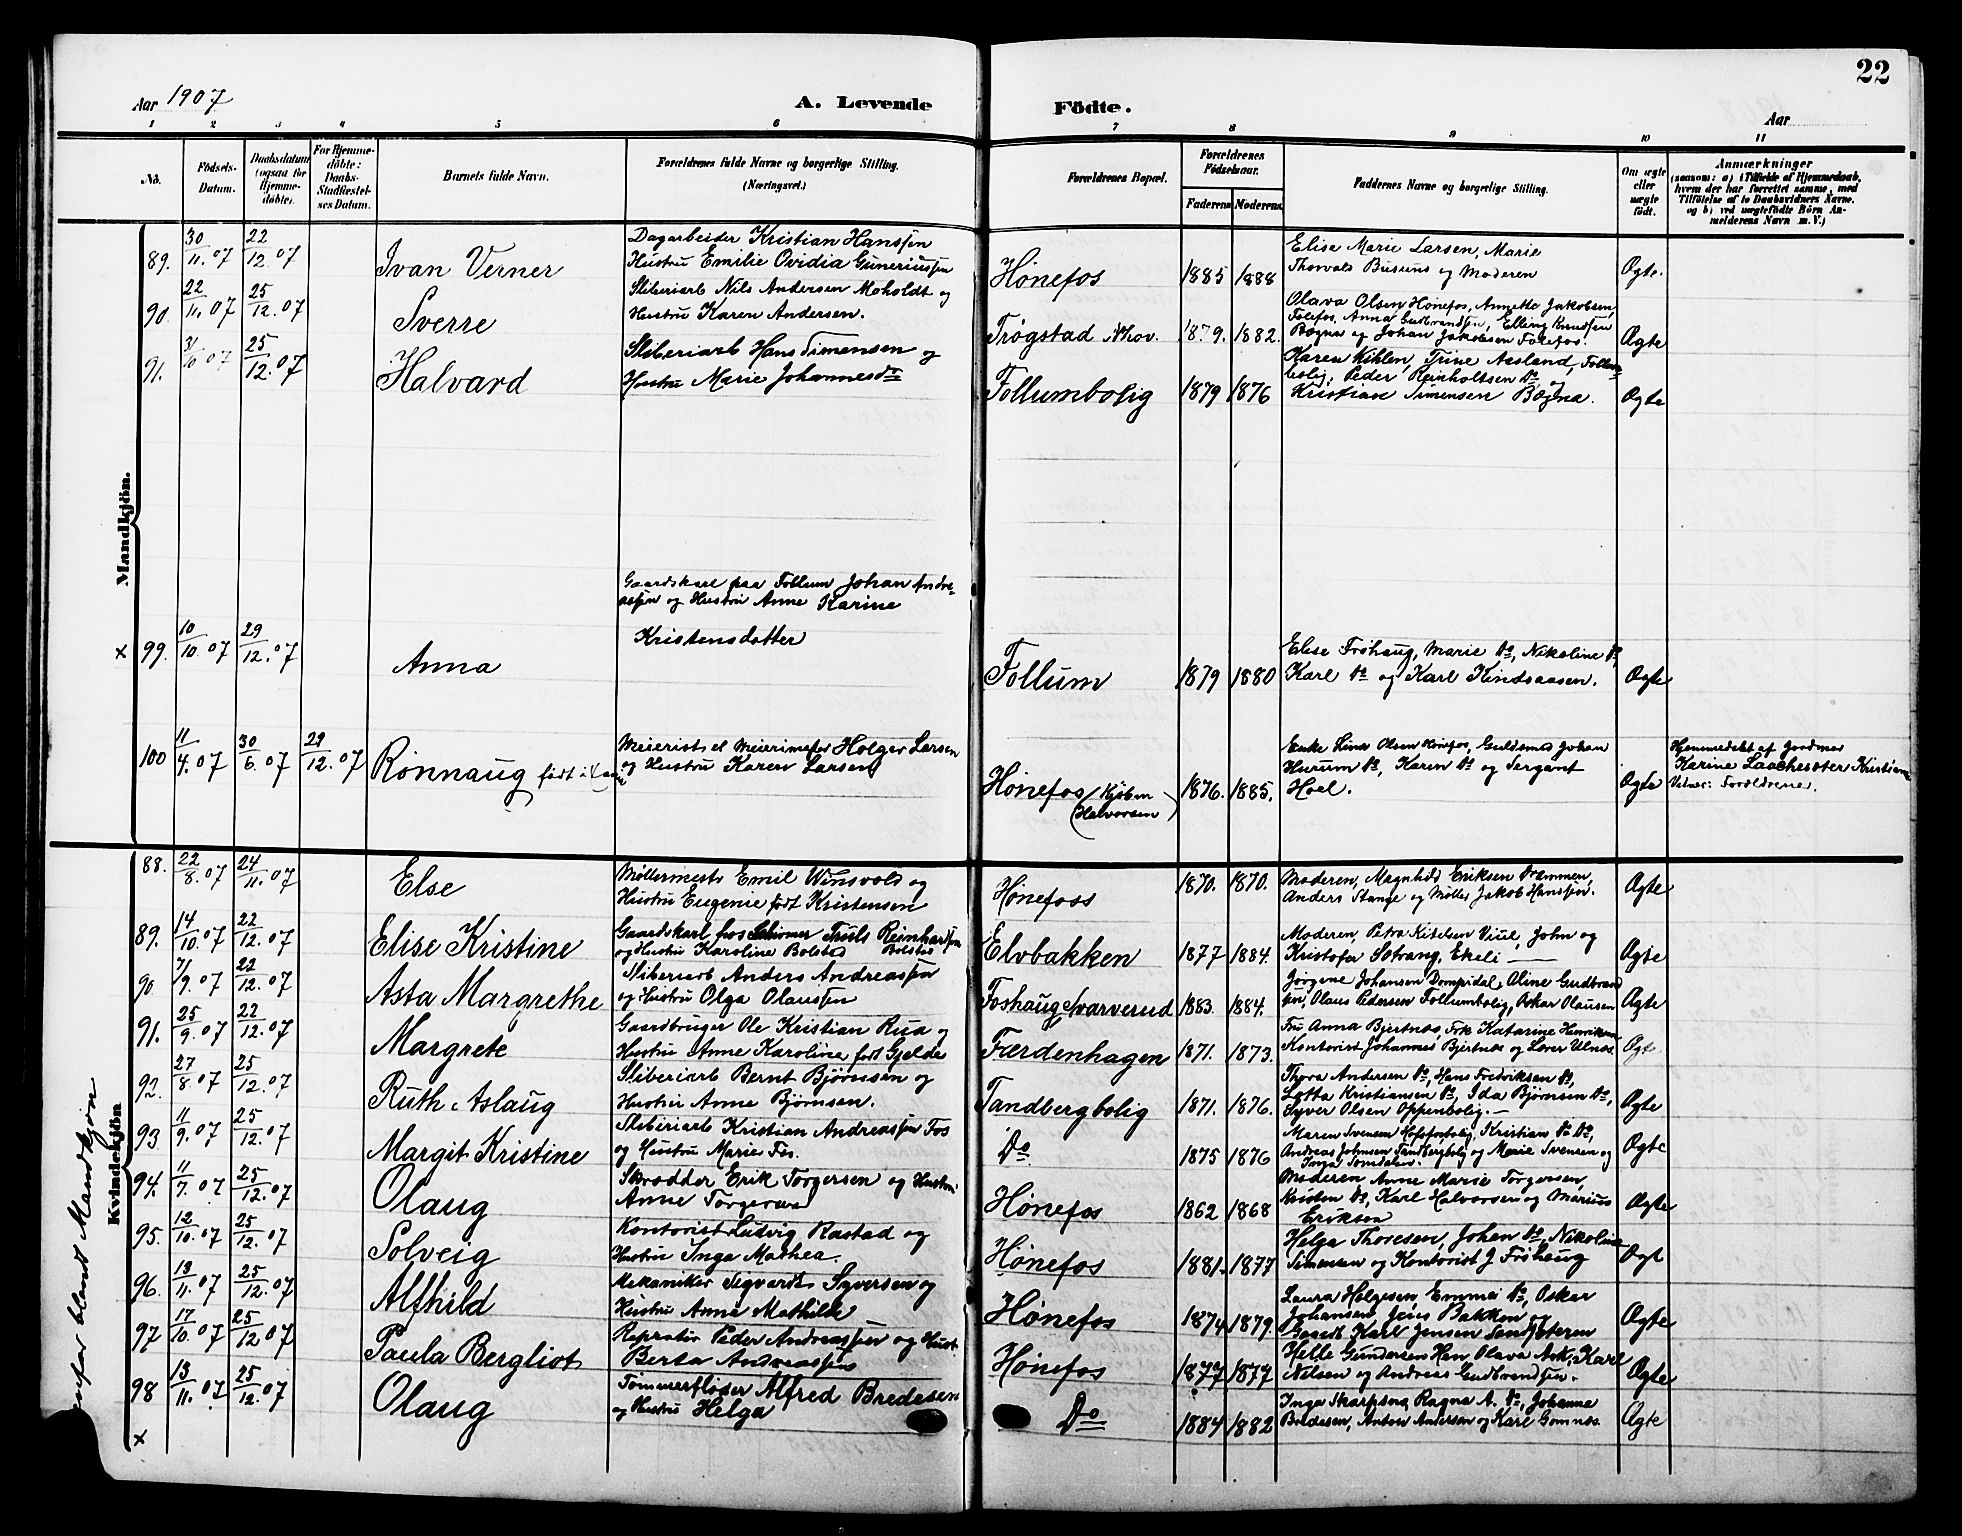 22
Aar 1907
A. Levende Födte.
Aar
1 2 3 4 5 6 7 8 9 10 11
No.
Födsels-Datum.
Daabsdatum (ogsaa for Hjemmedöbte).
For Hjemmedöbte: Daabs-Stadfestelses Datum.
Barnets fulde Navn.
Forældrenes fulde Navne og borgerlige Stilling. (Næringsvei.)
Forældrenes Bopæl.
Forældrenes Födselsaar.
Faderens Moderens
Faddernes Navne og borgerlige Stilling.
Om ægte eller uægte födt.
Anmærkninger
(saasom: a) i Tilfælde af Hjemmedaab, hvem der har forrettet samme, med Tilföielse af to Daabsvidners Navne, og b) ved uægtefödte Börn Anmelderens Navn m. V.)
Mandkjön.
89. 30/11.07 22/12.07 Ivan Verner
Dagarbeider Kristian Hanssen
Hustru Emilie Ovidia Guneriussen
Hønefos 1885 1888
Elise Marie Larsen, Marie
Thorvald Busund og Moderen
Ægte.
90. 22/11.07 25/12.07 Sverre
Sliberiarb Nils Andersen Moholdt og
Hustru Karen Andersen.
Trøgstad i Nhov. 1879. 1882.
Olava Olsen Hønefos, Annette Jakobsen,
Folefos, Anna Gudbrandsen, Elling Knudsen
Bægna og Johan Jakobsen Folefos.
Ægte
91. 31/10 07 25/12.07 Halvard
Sliberiarb Hans Simensen og
Hustru Marie Johannesdtr
Follumbolig 1879 1876
Karen Kihlen, Trine Aasland, Follumbolig, Peder Reinholtsen Do og
Kristian Simensen Bægna.
Ægte
x 99. 10/10.07 29/12.07 Anna
Gaardskarl paa Follum Johan Andreassen og Hustru Anne Karine
Kristensdatter
Follum 1879 1880
Elise Frøhaug, Marie Do, Nikoline Do,
Karl Do og Karl Kindsaasen.
Ægte
100 11/4.07 30/6.07 29/12.07 Rønnaug født i
Meierist el Meierimester Holger Larsen
og Hustru Karen Larsen
Hønefos (Kjøbm Halvorsen) 1876. 1885.
Enke Lina Olsen Hønefos, Guldsmed Johan
Hurum Do, Karen Do og Sergant
Hoel.
Ægte
Hjemmedøbt af Jordmor
Karine Kristian
Vidner: Forældrene.
Kvindekjön
88. 22/8.07 24/11.07 Else
Møllermestr Emil Winsvold og
Hustru Eugenie født Kristensen
Hønefoss 1870. 1870.
Moderen, Magnhild Eriksen Drammen,
Anders Stange og Møller Jakob Hanssen.
Ægte
89. 14/10.07 22/12.07 Elise Kristine
Gaardskarl hos Schirmer Truls Reinhardsen Bolstad
og Hustru Karoline Bolstad
Elvbakken 1877 1884.
Moderen, Petra Kittelsen Viul, John og
Kristofer Sotrang, Ekeli
Ægte
90 7/9.07 22/12.07 Asta Margrethe
Sliberiarb Anders Andreassen
og Hustru Olga Olaussen
Foshaug Svarverud 1883. 1884.
Jørgine Johansen Dompidal, Oline Gudbrandsen, Olaus Pedersen Follumbolig, Oskar Olausen
Ægte
91. 25/9.07 22/12.07 Margrete
Gaardbruger Ole Kristian Rua og
Hustru Anne Karoline født Gjelde
Færdenhagen 1871. 1873.
Fru Anna Bjertnæs, Frk Katarine Henriksen
Kontorist Johannes Bjertnæs og Lærer Ulnæs.
Ægte
92. 27/8.07 25/12.07 Ruth Aslaug
Sliberiarb Bernt Bjørnsen og
Hustru Anne Bjørnsen.
Tandbergbolig 1871. 1876.
Thora Andersen Do, Hans Fredriksen Do,
Lotta Kristiansen Do, Ida Bjørnsen Do,
Syver Olsen Oppenbolig.
Ægte
93. 11/9.07 25/12.07 Margit Kristine
Sliberiarb Kristian Andreassen Fos
og Hustru Marie Fos.
Do 1875 1876
Maren Svensen Hofsfosbolig, Kristian Do Do,
Andreas Johnsen Tandbergbolig og Marie Svensen og
Inga Somdalen.
Ægte
94. 11/7.07 25/12.07 Olaug
Skrædder Erik Torgersen og Hustru
Anne Torgersen
Hønefos 1862 1868
Moderen Anne Marie Torgersen,
Kristen Do, Karl Halvorsen og Marius
Eriksen
Ægte
95. 12/10.07 25/12.07 Solveig
Kontorist Ludvig Rastad og
Hustru Inga Mathea.
Hønefos 1881 1877
Helga Thoresen, Johan Do, Nikoline
Simensen og Kontorist J Frøhaug
Ægt
96. 13/11.07 25/12.07 Alfhild
Mekaniker Sigvardt Syversen og
Hustru Anna Mathilde
Hønefos 1874 1879.
Laura Helgesen, Emma Do, Oskar
Johansen Jeies Bakken og
Gaardb Karl Jensen Sandsæteren
Ægte
97 17/10.07 25/12 07 Paula Bergliot
Repratør Peder Andreassen og Hust
Berta Andreassen
Hønefos 1877 1877
Helle Gundersen Hen, Olava Ask, Karl
Nilsen og Andreas Gudbrandsen.
Ægte
98 13/11.07 25/12.07 Olaug
Tømmerfløder Alfred Bredesen
og Hustru Helga
Do 1884 1882
Inga Skarpsno, Ragna A. Do, Johanne
Bredesen, Anton Andersen og Karl Gomnæs.
Ægte
x
blandt Mandkjøn